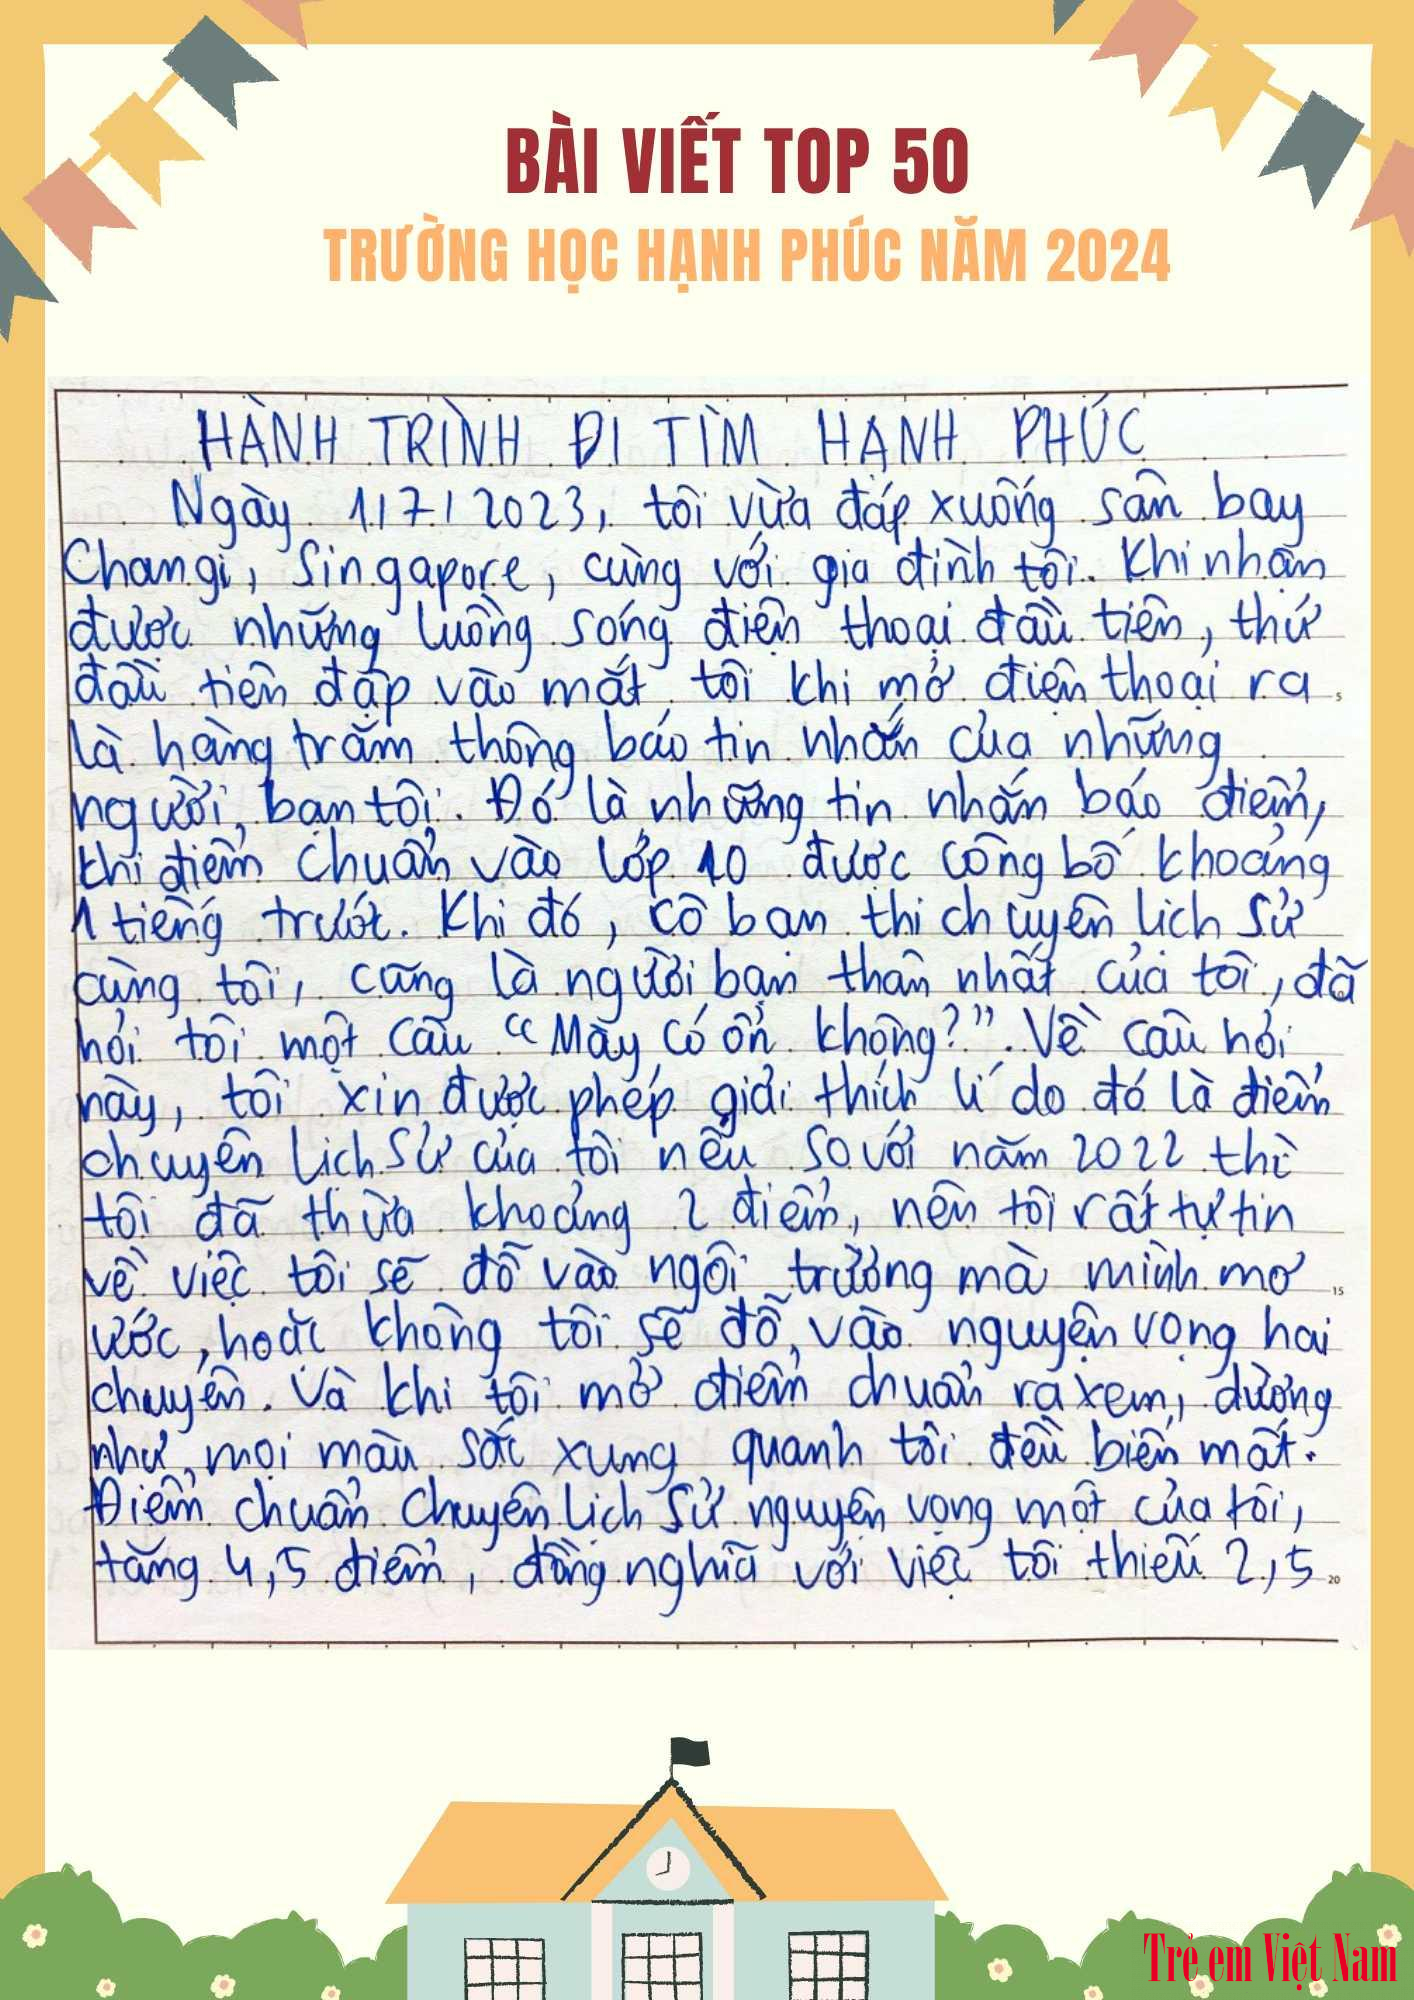 BÀI VIẾT TOP 50
TRƯỜNG HỌC HẠNH PHÚC NĂM 2024
HÀNH TRÌNH ĐI TÌM HẠNH PHÚC
Ngày 1/7/2023, tôi vừa đáp xuống sân bay
Changi, Singapore, cùng với gia đình tôi. Khi nhận
được những luồng sóng điện thoại đầu tiên, thứ
đầu tiên đập vào mắt tôi khi mở điện thoại ra
5
là hàng trăm thông báo tin nhắn của những
người bạn tôi. Đó là những tin nhắn báo điểm,
khi điểm chuẩn vào lớp 10 được công bố khoảng
1 tiếng trước. Khi đó, cô bạn thi chuyên Lịch Sử
cùng tôi, cũng là người bạn thân nhất của tôi, đã
hỏi tôi một câu “Mày có ổn không?”. Về câu hỏi
này, tôi xin được phép giải thích lí do đó là điểm
chuyên Lịch Sử của tôi nếu so với năm 2022 thì
tôi đã thừa khoảng 2 điểm, nên tôi rất tự tin
về việc tôi sẽ đỗ vào ngôi trường mà mình mơ
15
ước, hoặc không tôi sẽ đỗ vào nguyện vọng hai
chuyên. Và khi tôi mở điểm chuẩn ra xem, dường
như mọi màu sắc xung quanh tôi đều biến mất.
Điểm chuẩn Chuyên Lịch Sử nguyện vọng một của tôi,
tăng 4,5 điểm, đồng nghĩa với việc tôi thiếu 2,5
20
Trẻ em Việt Nam